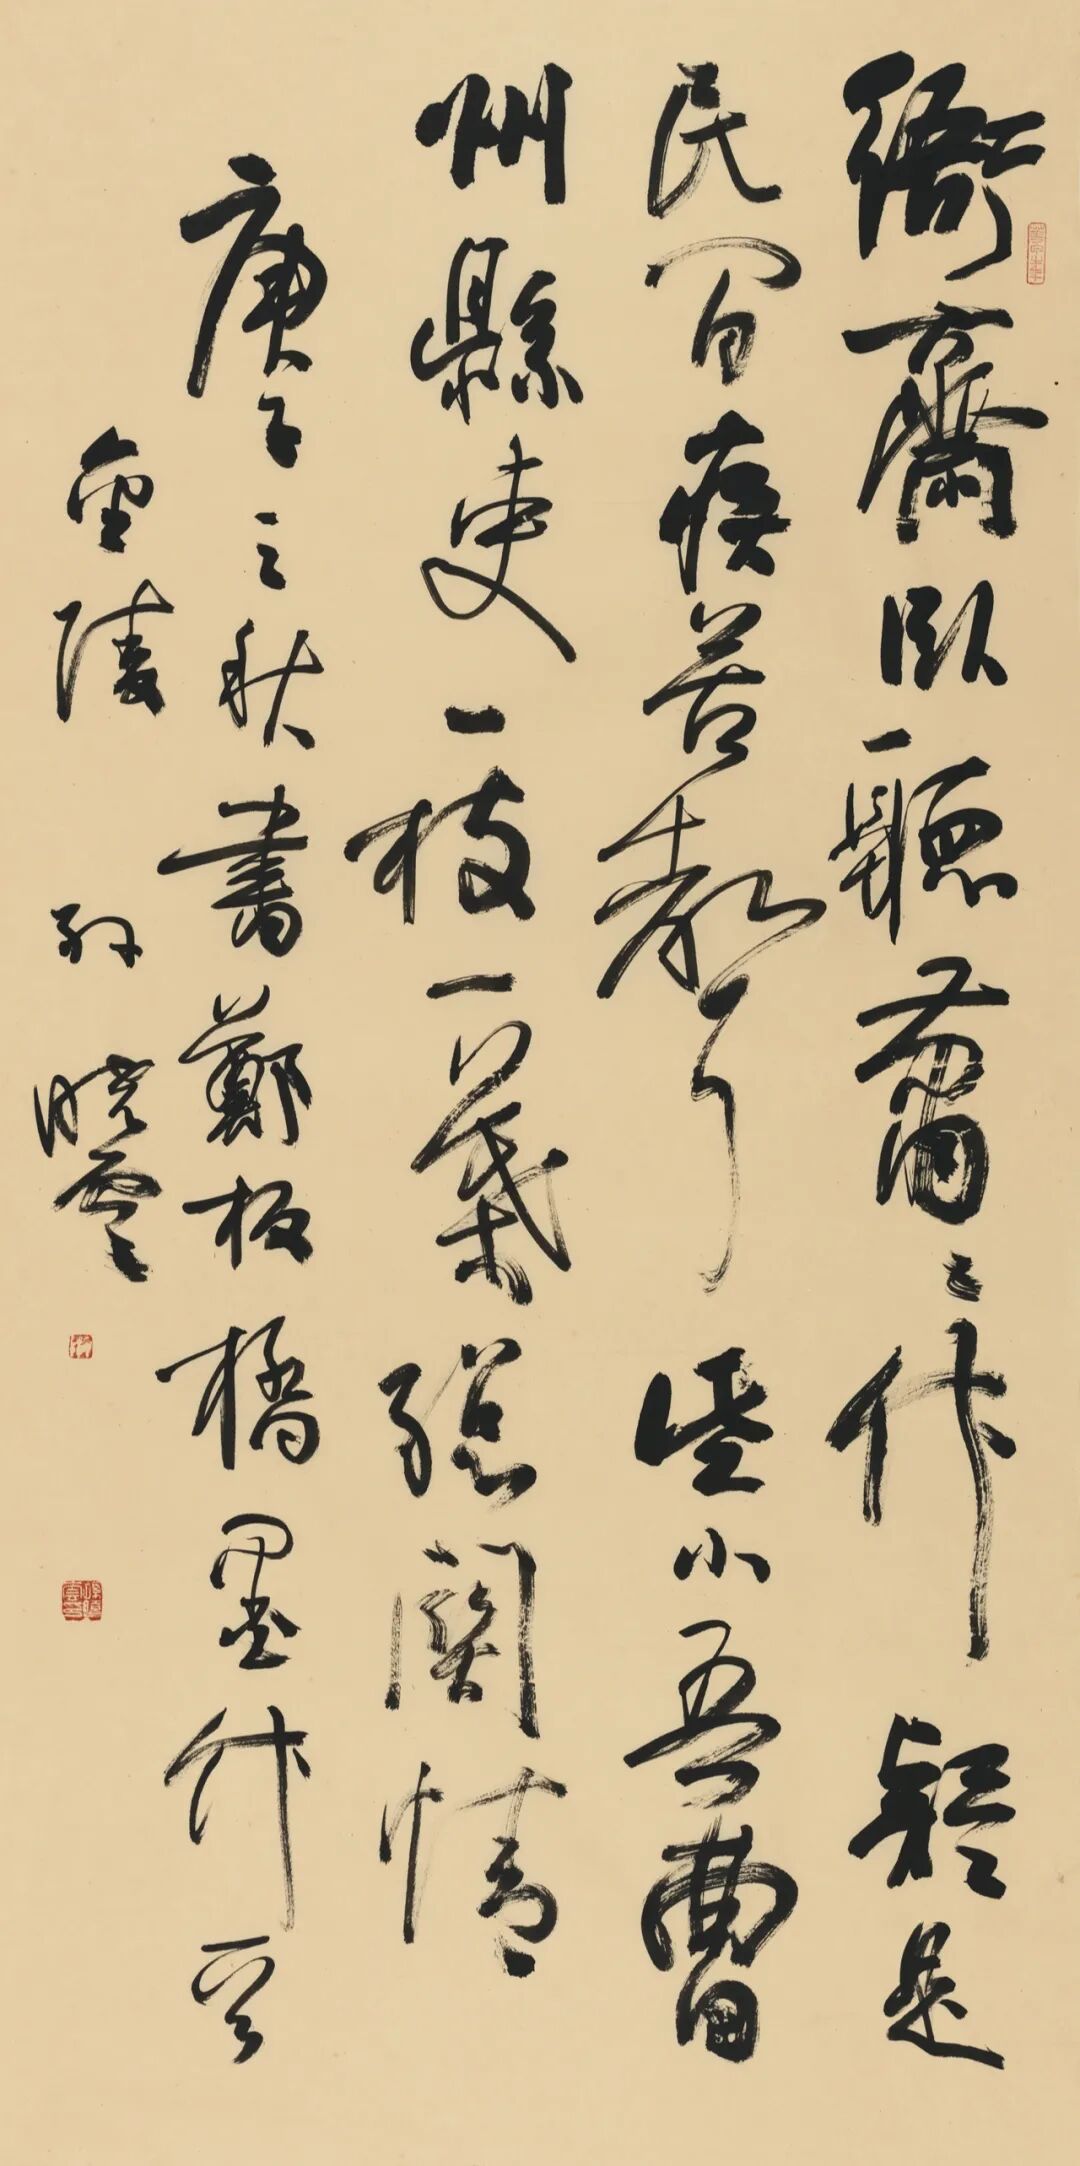 衙齋臥聽蕭〻竹疑是
民間疾苦聲些小吾曹
州縣吏一枝一葉總關情
庚子之秋書鄭板橋墨竹
金陵孫曉雲